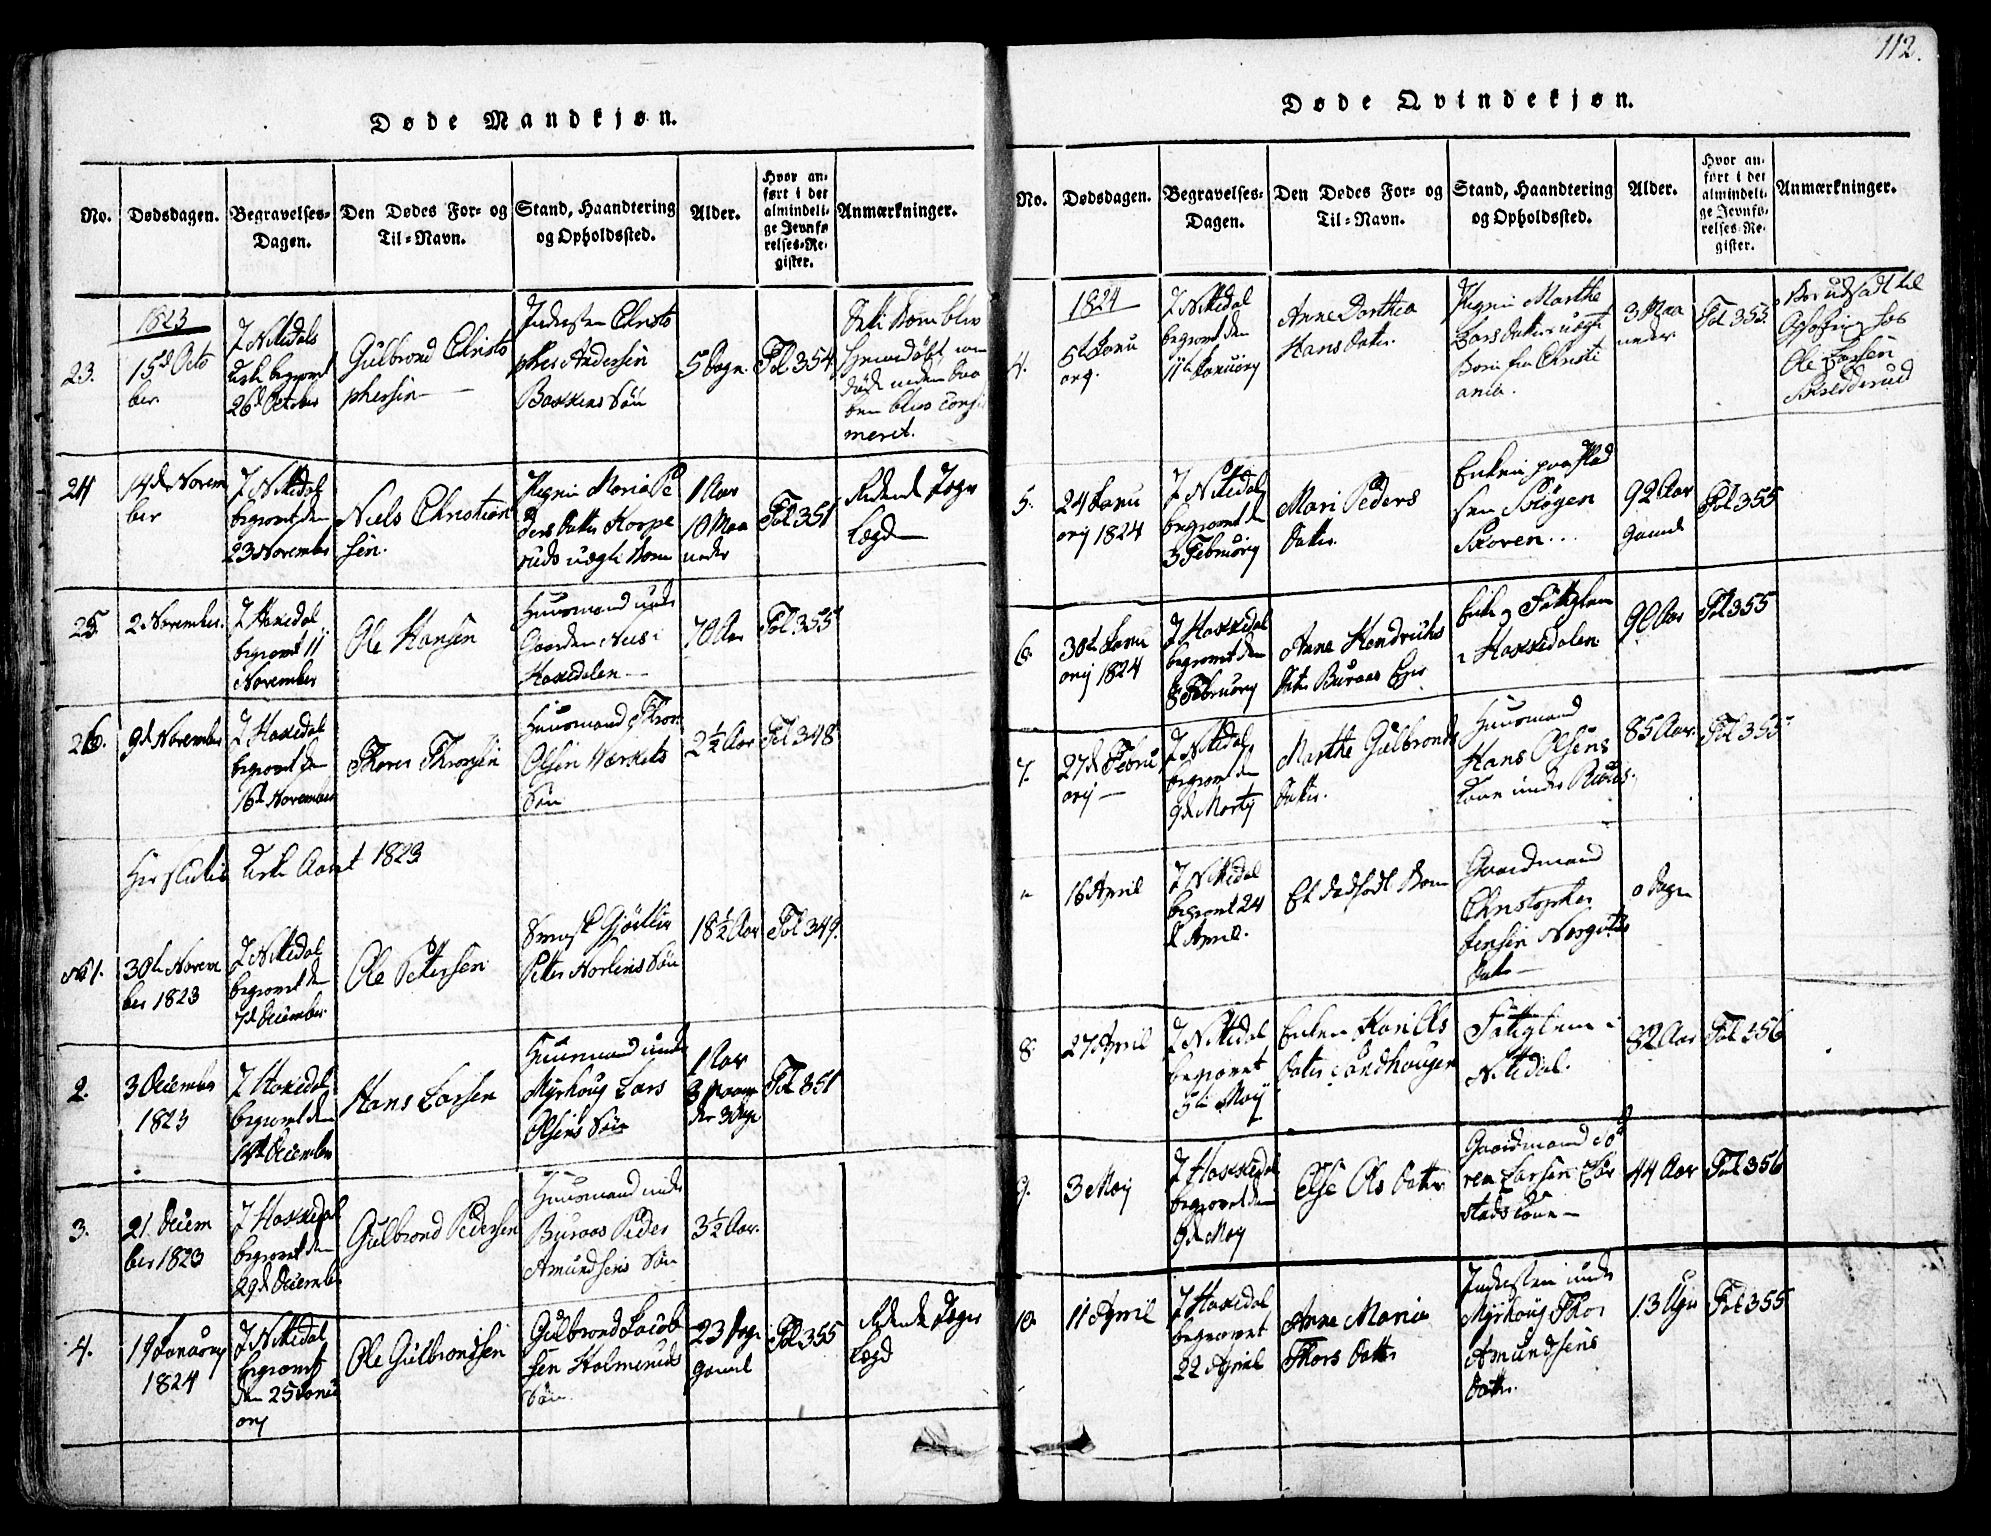 112.
Døde Mandkjøn.
No. Dødsdagen. Begravelses-Dagen. Den Dødes For- og Til-Navn. Stand, Haandtering og Opholdssted. Alder. Hvor anført i det almindelige Jevnførelses-Register. Anmærkninger.
1823
23.
15d Octo
ber
I Nitedals
Kirke begravet
26d October
Gulbrand Christo
phersen
Indersten Christo
pher Andersen
Bakkens Søn
5 Dage
Fol 354
Dette Barn blev
hjemmedøbt
døde inden Daa
ben blev confir
meret.
24
14d Novem
ber
I Nitedal
begravet den
23 November
Niels Christian
sen.
Pigen Maria Pe
ders Datter
uægte Barn
1 Aar
10 Maa
neder
Fol 351
Lægd
25.
2 November.
I Hakedal
begravet 11
November
Ole Hansen
Huusmand under
Gaarden Nees i
Hakedalen
70 Aar
Fol 355
26.
9d November
I Hakedal
begravet den
16d November
Thorer Thronsen
Huusmand Thron
Olsen Værkets
Søn
2½ Aar
Fol 348
Her sluttes Kirke Aaret 1823
No 1.
30te Novem
ber 1823
I Nitedal
begravet den
7d December
Ole Pettersen
Petter Norlins Søn
18½ Aar
Fol 349.
2.
3 December
1823
I Hakedal
begravet den
14d December
Hans Larsen
Huusmand under
Myrhoug Lars
Olsens Søn
1 Aar
3 Maane
der 3 Dage
Fol 351
3.
21 Decem
ber 1823
I Hakkedal
begravet den
29d December
Gulbrand Pedersen
Huusmand under
Buraas Peder
Amundsens Søn
3½ Aar.
4.
19 Januarij
1824
I Nitedal
begravet
den 25 Janu
arij
Ole Gulbrandsen
Gulbrand Jacob
sen Holmeruds
Søn
23 Dage
gammel
Fol 355
Lægd
Døde Qvindekjøn.
No. Dødsdagen. Begravelses-Dagen. Den Dødes For- og Til-Navn. Stand, Haandtering og Opholdssted. Alder. Hvor anført i det almindelige Jevnførelses-Register. Anmærkninger.
1824
4.
5t Janu
arij.
I Nitedal
begravet den
11te Januarij
Anne Dorthea
Hans Datter
Pigen Marthe
Lars Datters uægte
Barn fra Christi
ania.
3 Maa
neder
Fol 355
Var udsadt til
Opfostring hos
Ole Larsen
5.
24 Janu
arij 1824
I Nitedal
begravet den
3 Februarij
Mari Peders
Datter
Enken paa Plad
sen Skøgen
Skoven
92 Aar
gammel
Fol 355
6.
30te Janu
arij 1824
I Hakkedal
begravet den
8 Februarij
Anne Hendrichs
Datter Buraas Eyer
Enke og Fattiglem
i Hakkedalen
90 Aar
Fol 355
7.
27d Febru
arij
I Nitedal
begravet den
9d Martij
Marthe Gulbrands
Datter.
Huusmand
Hans Olsens
Kone under
85 Aar.
Fol 355
16 April
I Nitedal
begravet 24
d April.
Et dødfødt Barn
Gaardmand
Christopher
Jensen
Datter
0 Dage
8.
27 April
I Nitedal
begravet
5te Maij
Enken Kari Ols
Datter Sandhougen
Fattiglem i
Nitedal.
82 Aar
Fol 356
9.
3 Maij
I Hakkedal
begravet den
9d Maij
Else Ols Datter
Gaardmand Sø
ren Larsen
stads Kone
44 Aar
Fol 356
10.
11 April
I Hakedal
begravet
22 April
Anne Maria
Thors Datter
Indersten under
Myrhoug Thor
Amundsens
Datter.
13 Uger
Fol 355